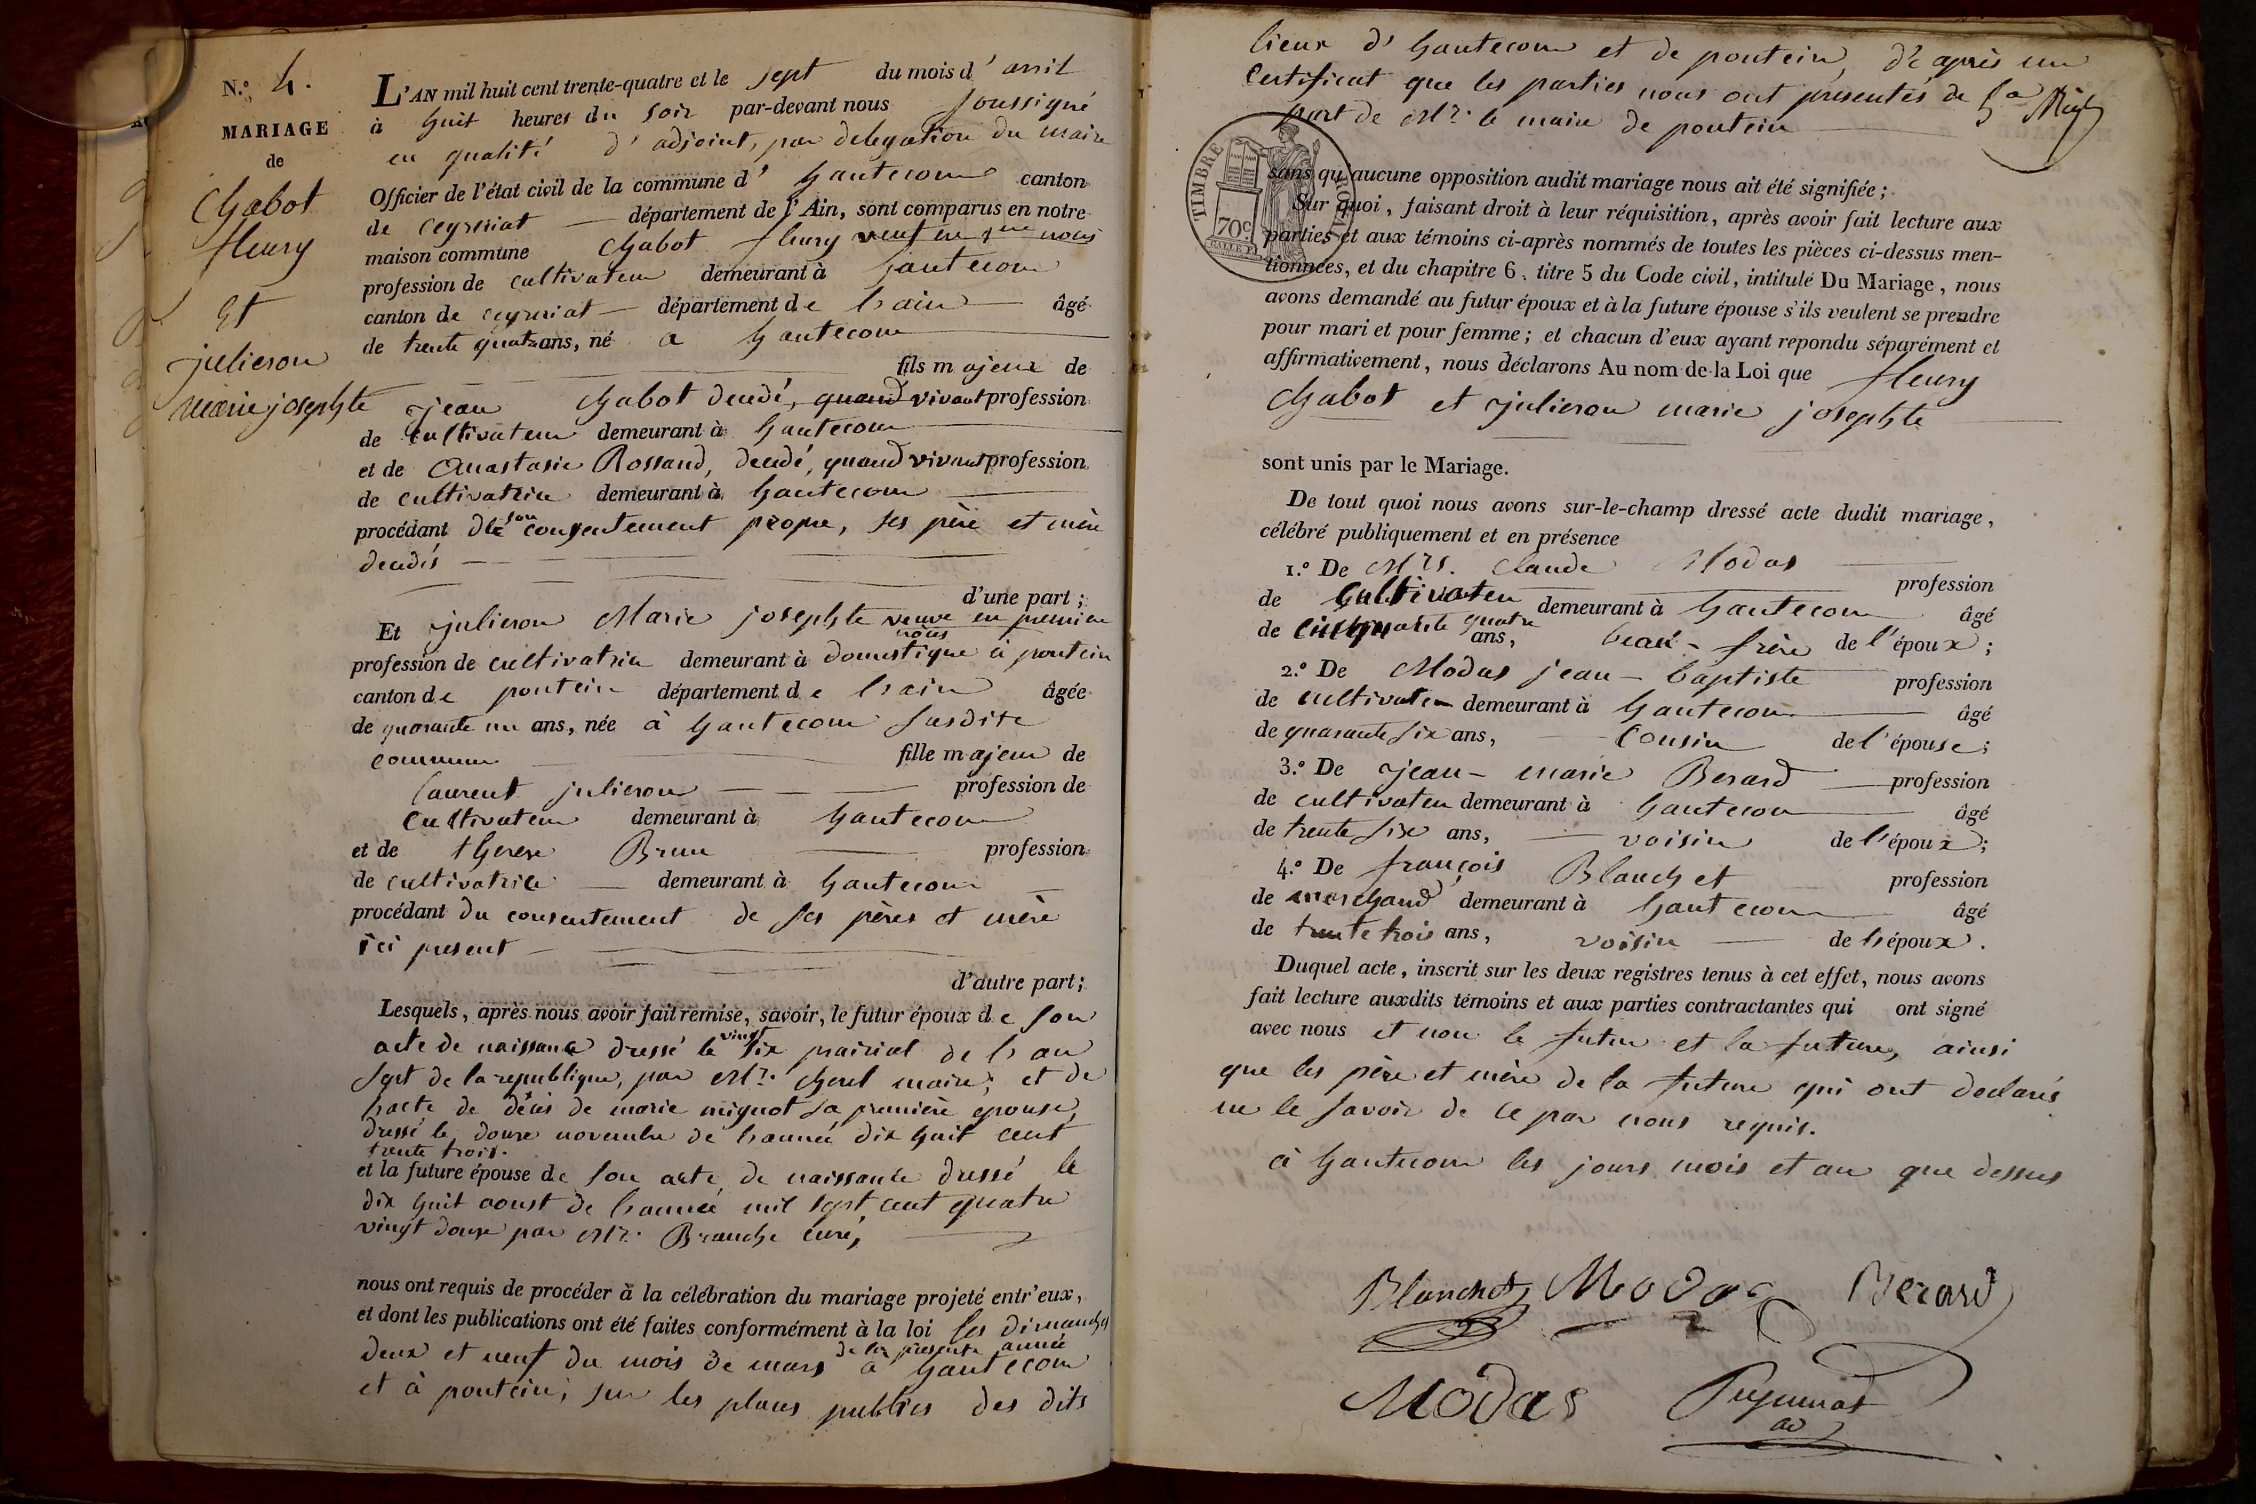 N.º 4.
MARIAGE
de
Chabot
fleury
Et
julieron
marie josephte
L'AN mil huit cent trente-quatre et le sept du mois d'avril
à huit heures du soir par-devant nous soussigné
en qualité d'adjoint, par delegation du maire
Officier de l'état civil de la commune d' hautecour canton
de ceyzeriat département de l'Ain, sont comparus en notre
maison commune Chabot fleury veuf en 1ere noces
profession de cultivateur demeurant à hautecour
canton de ceyzeriat département de l'ain âgé
de trente quatre ans, né a hautecour
fils majeur de
jean Chabot decedé, quand vivant profession
de cultivateur demeurant à hautecour
et de Anastasie Rossand, decedé, quand vivant profession
de cultivatrice demeurant à hautecour
procédant de son consentement propre, ses père et mère
decedés
d'une part;
Et julieron Marie josephte veuve en premiere
noces
profession de cultivatrice demeurant à domestique à poncin
canton de poncin département de l'ain âgée
de quarante un ans, née à hautecour susdite
commune fille majeur de
laurent julieron profession de
cultivateur demeurant à hautecour
et de therese Brun profession
de cultivatrice demeurant à hautecour
procédant du consentement de ses pères et mère
ici present
d'autre part;
Lesquels, après nous avoir fait remise, savoir, le futur époux de son
acte de naissance dressé le vingt six prairial de l'an
sept de la republique, par Mr. Cherel maire; et de
l'acte de décès de marie mignot sa première épouse,
dressé le douze novembre de l'année dix huit cent
trente trois.
et la future épouse de son acte de naissance dressé le
dix huit aoust de l'année mil sept cent quatre
vingt douze par Mr. Branche curé,
nous ont requis de procéder à la célébration du mariage projeté entr'eux,
et dont les publications ont été faites conformément à la loi les dimanches
deux et neuf du mois de mars de la presente année à hautecour
et à poncin, sur les places publics des dits
lieux d'hautecour et de poncin, d'après un
Certificat que les parties nous ont presentés de la
part de Mr. le maire de poncin
TIMBRE ROYAL
70 c.
sans qu'aucune opposition audit mariage nous ait été signifiée;
Sur quoi, faisant droit à leur réquisition, après avoir fait lecture aux
parties et aux témoins ci-après nommés de toutes les pièces ci-dessus men-
tionnées, et du chapitre 6, titre 5 du Code civil, intitulé Du Mariage, nous
avons demandé au futur époux et à la future épouse s'ils veulent se prendre
pour mari et pour femme; et chacun d'eux ayant repondu séparément et
affirmativement, nous déclarons Au nom de la Loi que fleury
Chabot et julieron marie josephte
sont unis par le Mariage.
De tout quoi nous avons sur-le-champ dressé acte dudit mariage,
célébré publiquement et en présence
1.º De Mrs. Claude Modas profession
de Cultivateur demeurant à hautecour âgé
de cinquante quatre ans, beau-frère de l'époux;
2.º De Modas jean-baptiste profession
de cultivateur demeurant à hautecour âgé
de quarante six ans, cousin de l'épouse;
3.º De jean-marie Berard profession
de cultivateur demeurant à hautecour âgé
de trente six ans, voisin de l'époux;
4.º De françois Blanchet profession
de marchand demeurant à hautecour âgé
de trente trois ans, voisin de l'époux.
Duquel acte, inscrit sur les deux registres tenus à cet effet, nous avons
fait lecture auxdits témoins et aux parties contractantes qui ont signé
avec nous et non le futur et la future, ainsi
que les père et mère de la future qui ont declarés
ne le savoir de ce par nous requis.
à hautecour les jours mois et an que dessus
Blanchet Modas Berard
Modas